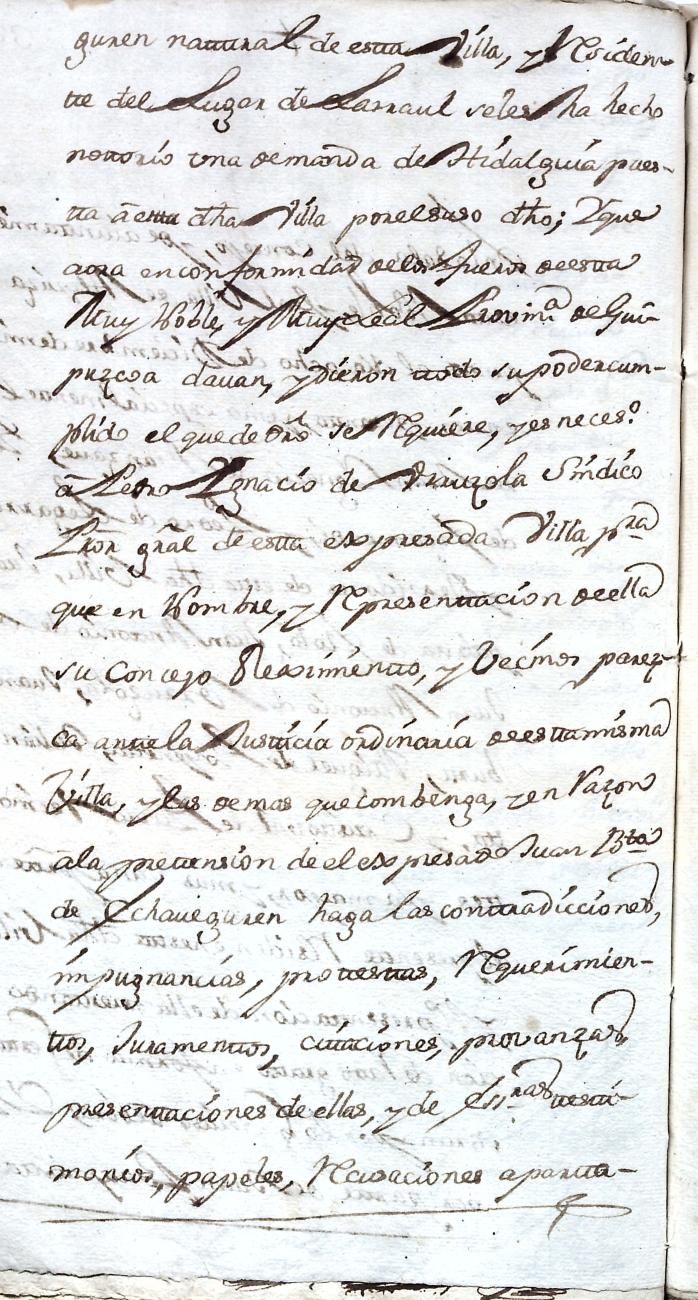 guren natural de esta Villa, y Residen-
te del Lugar de Larraul seles ha hecho
notorio una demanda de Hidalguia pues-
ta a esta dha Villa por el suso dho; Y que
aora en conformidad de los fueros de esta
Muy Noble, y Muy Leal Provinª de Gui-
puzcoa davan, y dieron todo su poder cum-
plido el que de dro se Requiere, y es necesº
a Pedro Ygnacio de Urruzola Sindico
Pror gñal de esta expresada Villa pra
que en Nombre, y Representacion de ella
su Concejo Reximiento, y Vecinos parez-
ca ante la Justicia ordinaria de esta misma
Villa, y las demas que combenga, y en Razon
a la pretension de el expresado Juan Bta
de Echaveguren haga las contradicciones,
impugnancias, protestas, Requerimien-
tos, Juramentos, citaciones, provanzas,
presentaciones de ellas, y de Essras testi-
monios, papeles, Recusaciones aparta-